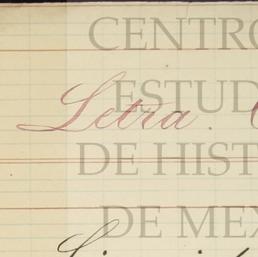 CENTRO
ESTUD
Letra.
DE HIST
DE MEX